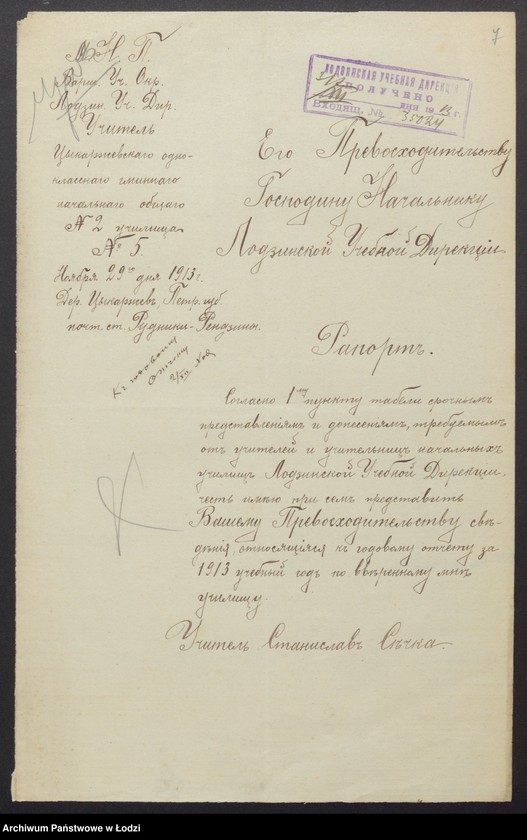 7
М. Н. П.
Варш. Уч. Окр.
Лодзин. Уч. Дир.
Учитель
Цыкаржевскаго одно-
класснаго гминнаго
начальнаго общаго
№ 2 училища
№ 5.
Ноября 29го дня 1913 г.
Дер. Цыкаржев, Петр. губ.
почт. ст. Рудники-Рендзины.
ЛОДЗИНСКАЯ УЧЕБНАЯ ДИРЕКЦІЯ
ПОЛУЧЕНО
дня 1913 г.
Входящ. № 35024
Его Превосходительству
Господину Начальнику
Лодзинской Учебной Дирекціи
Рапортъ.
Къ годовому
отчету
Согласно 1му пункту табели срочнымъ
представленіямъ и донесеніямъ, требуемымъ
отъ учителей и учительницъ начальныхъ
училищъ Лодзинской Учебной Дирекціи,
честь имѣю при семъ представить
Вашему Превосходительству свѣ-
дѣнія, относящіяся къ годовому отчету за
1913 учебный годъ по ввѣренному мнѣ
училищу.
Учитель Станиславъ Сѣчка
Archiwum Państwowe w Łodzi